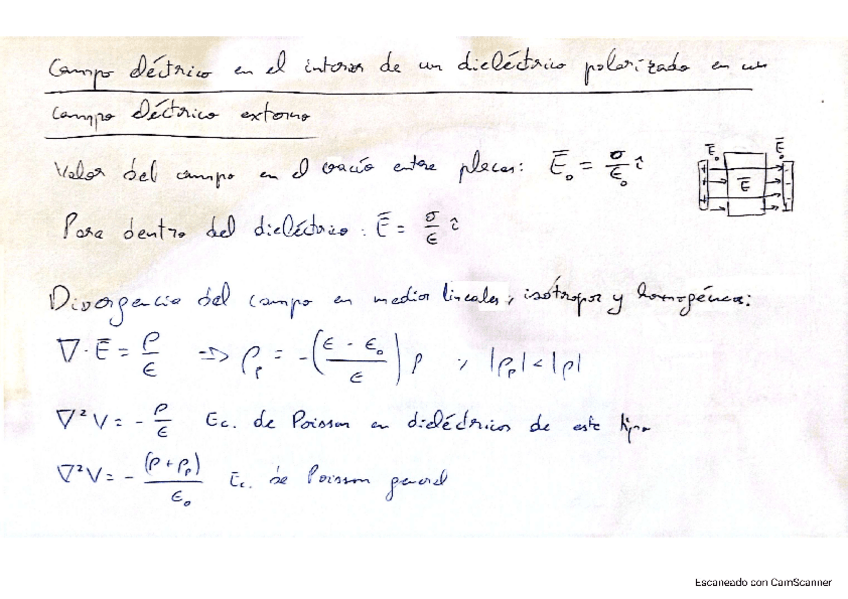 Campo eléctrico en el interior de un dieléctrico polarizado en un
campo eléctrico externo
Valor del campo en el vacío entre placas: Ē₀ = σ/ε₀ î
Ē₀ Ē Ē₀
Para dentro del dieléctrico: Ē = σ/ε î
Divergencia del campo en medios lineales, isótropos y homogéneos:
∇·Ē = ρ/ε => ρₚ = -((ε - ε₀)/ε) ρ , |ρₚ| < |ρ|
∇²V = -ρ/ε Ec. de Poisson en dieléctricos de este tipo
∇²V = -(ρ + ρₚ)/ε₀ Ec. de Poisson general
Escaneado con CamScanner